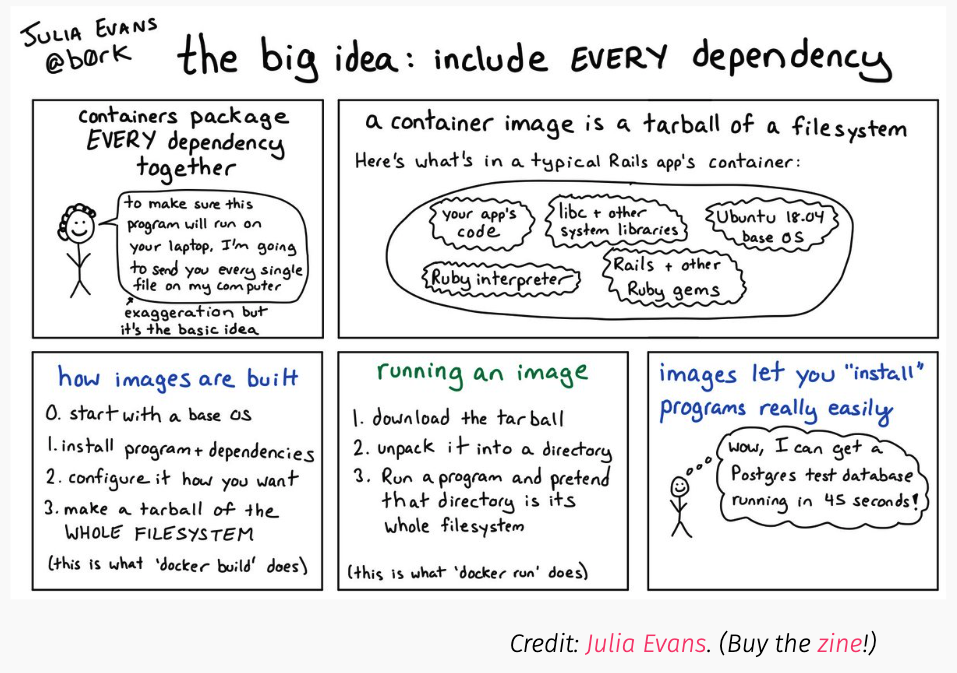 JULIA EVANS
@b0rk
the big idea: include EVERY dependency
containers package
EVERY dependency
together
to make sure this
program will run on
your laptop, I'm going
to send you every single
file on my computer
exaggeration but
it's the basic idea
a container image is a tarball of a filesystem
Here's what's in a typical Rails app's container:
your app's
code
libc + other
system libraries
Ubuntu 18.04
base OS
Ruby interpreter
Rails + other
Ruby gems
how images are built
0. start with a base OS
1. install program + dependencies
2. configure it how you want
3. make a tarball of the
WHOLE FILESYSTEM
(this is what 'docker build' does)
running an image
1. download the tarball
2. unpack it into a directory
3. Run a program and pretend
that directory is its
whole filesystem
(this is what 'docker run' does)
images let you "install"
programs really easily
wow, I can get a
Postgres test database
running in 45 seconds!
Credit: Julia Evans. (Buy the zine!)